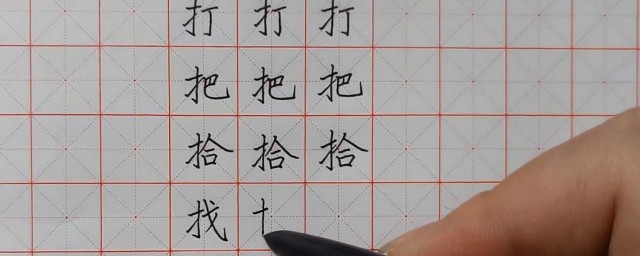 打打打
把把把
拾拾拾
找